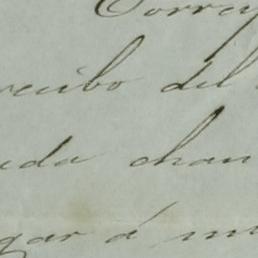 Correy
recibo del
uda chan
gar á m